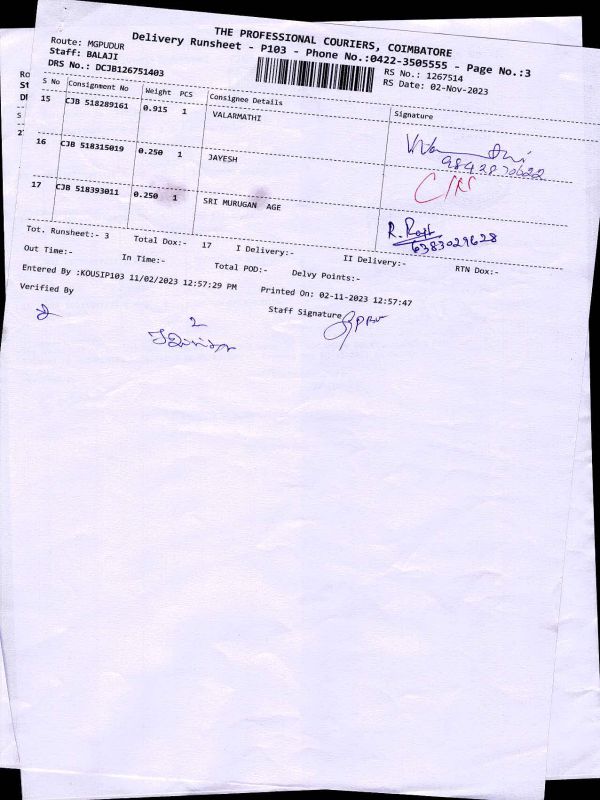 THE PROFESSIONAL COURIERS, COIMBATORE
Delivery Runsheet - P103 - Phone No.:0422-3505555 - Page No.:3
Route: MGPUDUR
Staff: BALAJI
DRS No.: DCJB126751403
RS No.: 1267514
RS Date: 02-Nov-2023
S No Consignment No Weight PCS Consignee Details Signature
15 CJB 518289161 0.915 1 VALARMATHI
16 CJB 518315019 0.250 1 JAYESH
17 CJB 518393011 0.250 1 SRI MURUGAN AGE
R. Raja
6383029628
Tot. Runsheet:- 3 Total Dox:- 17 I Delivery:- II Delivery:- RTN Dox:-
Out Time:- In Time:- Total POD:- Delvy Points:-
Entered By :KOUSIP103 11/02/2023 12:57:29 PM Printed On: 02-11-2023 12:57:47
Verified By Staff Signature
2